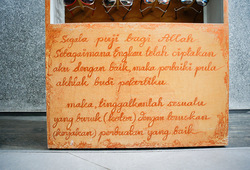 Segala puji bagi Allah
Sebagaimana Engkau telah ciptakan
aku dengan baik, maka perbaiki pula
akhlak budi pekertiku.
maka, tinggalkanlah sesuatu
yang buruk (kotor) dengan lakukan
(kerjakan) perbuatan yang baik